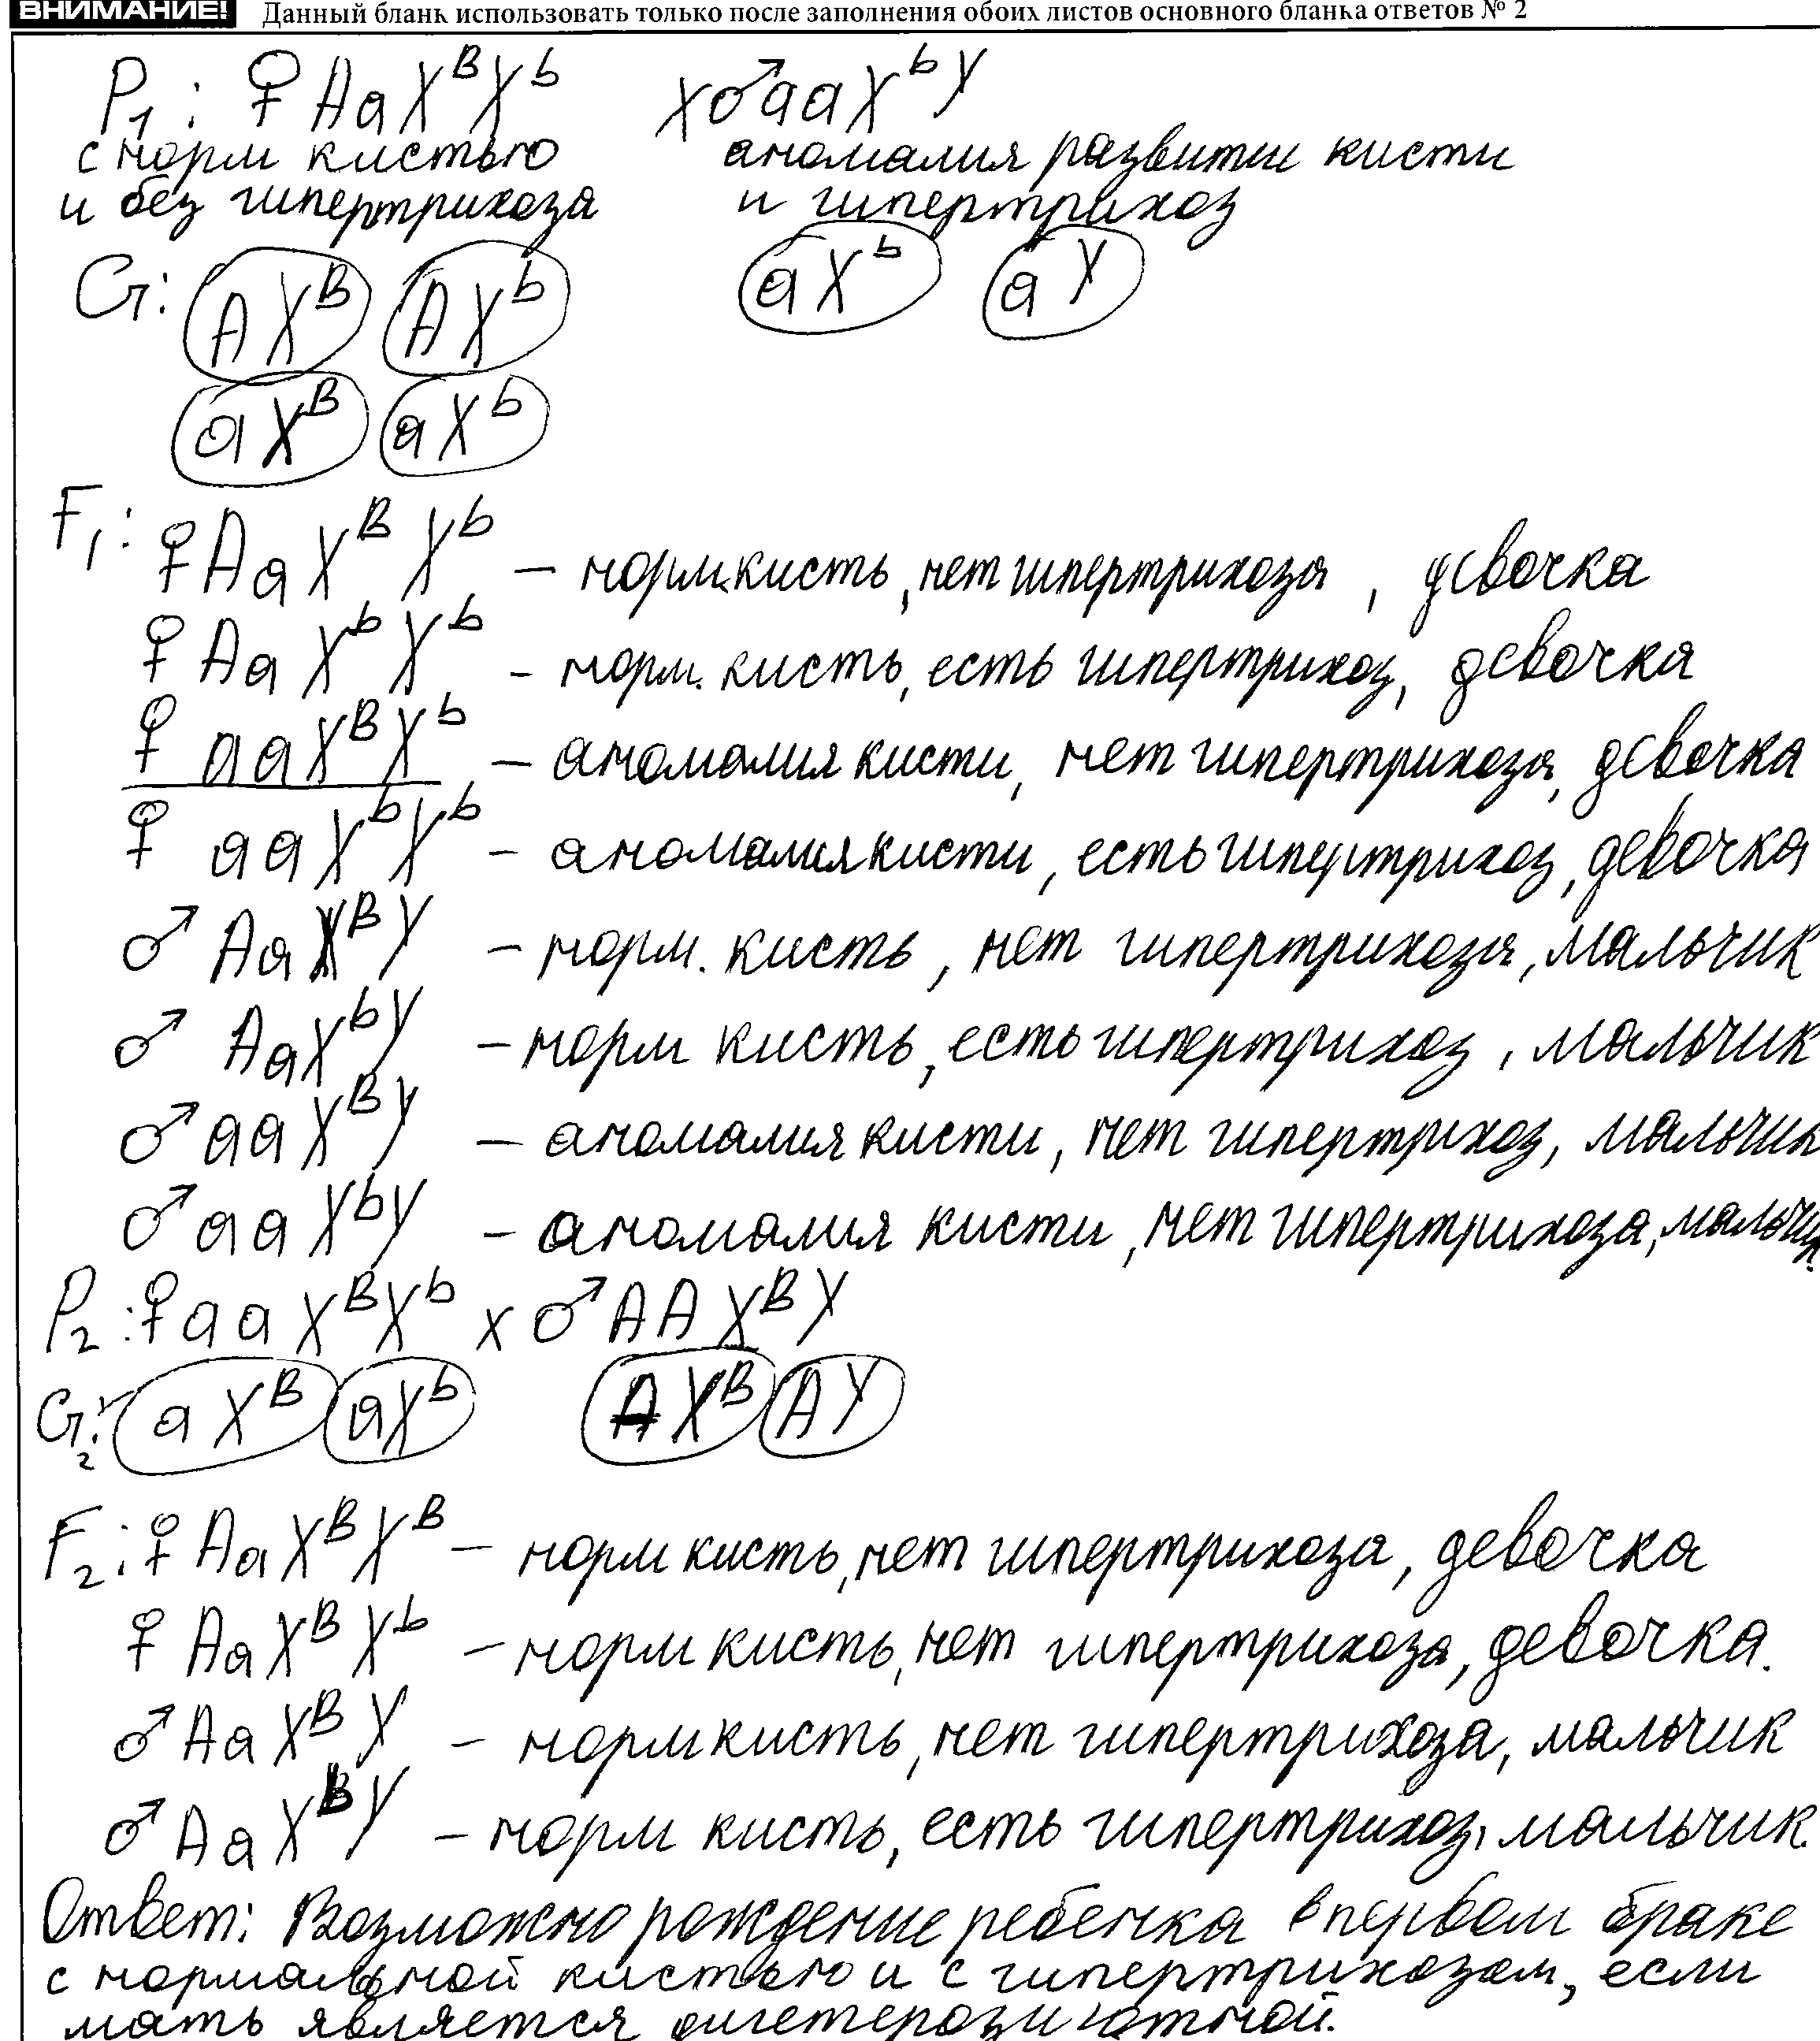 ВНИМАНИЕ! Данный бланк использовать только после заполнения обоих листов основного бланка ответов № 2
P₁: ♀ AaXᴮXᵇ x ♂ aaXᵇY
с норм кистью аномалия развитии кисти
и без гипертрихоза и гипертрихоз
G: AXᴮ AXᵇ aXᵇ aY
aXᴮ aXᵇ
F₁: ♀ AaXᴮXᵇ – норм.кисть, нет гипертрихоза, девочка
♀ AaXᵇXᵇ – норм. кисть, есть гипертрихоз, девочка
♀ aaXᴮXᵇ – аномалия кисти, нет гипертрихоза, девочка
♀ aaXᵇXᵇ – аномалия кисти, есть гипертрихоз, девочка
♂ AaXᴮY – норм. кисть, нет гипертрихоза, мальчик
♂ AaXᵇY – норм кисть, есть гипертрихоз, мальчик
♂ aaXᴮY – аномалия кисти, нет гипертрихоз, мальчик
♂ aaXᵇY – аномалия кисти, нет гипертрихоза, мальчик.
P₂: ♀ aaXᴮXᵇ x ♂ AAXᴮY
G₂: aXᴮ aXᵇ AXᴮ AY
F₂: ♀ AaXᴮXᴮ – норм кисть, нет гипертрихоза, девочка
♀ AaXᴮXᵇ – норм кисть, нет гипертрихоза, девочка.
♂ AaXᴮY – норм кисть, нет гипертрихоза, мальчик
♂ AaXᵇY – норм кисть, есть гипертрихоз, мальчик.
Ответ: Возможно рождение ребенка в первом браке
с нормальной кистью и с гипертрихозом, если
мать является дигетерозиготной.